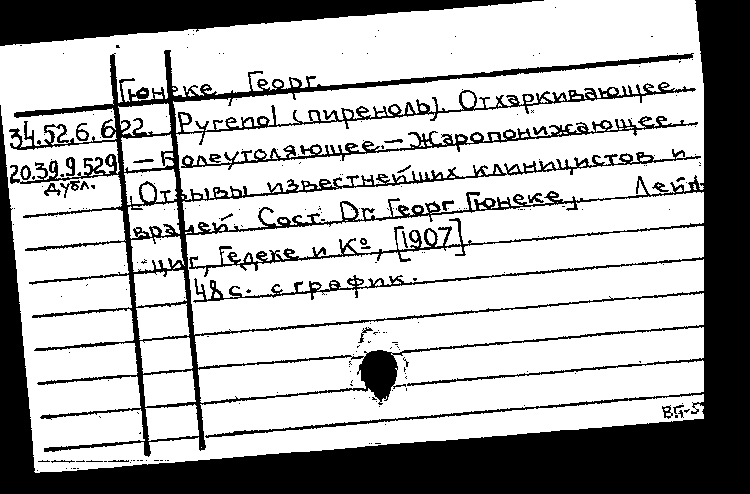 Гюнеке, Георг.
34.52.6.622. Pyrenol (пиреноль). Отхаркивающее.
20.39.9.529. — Болеутоляющее. — Жаропонижающее.
дубл. Отзывы известнейших клиницистов и
врачей. Сост. Dr. Георг Гюнеке. Лейп
циг, Гедеке и К⁰, [1907].
48 с. с график.